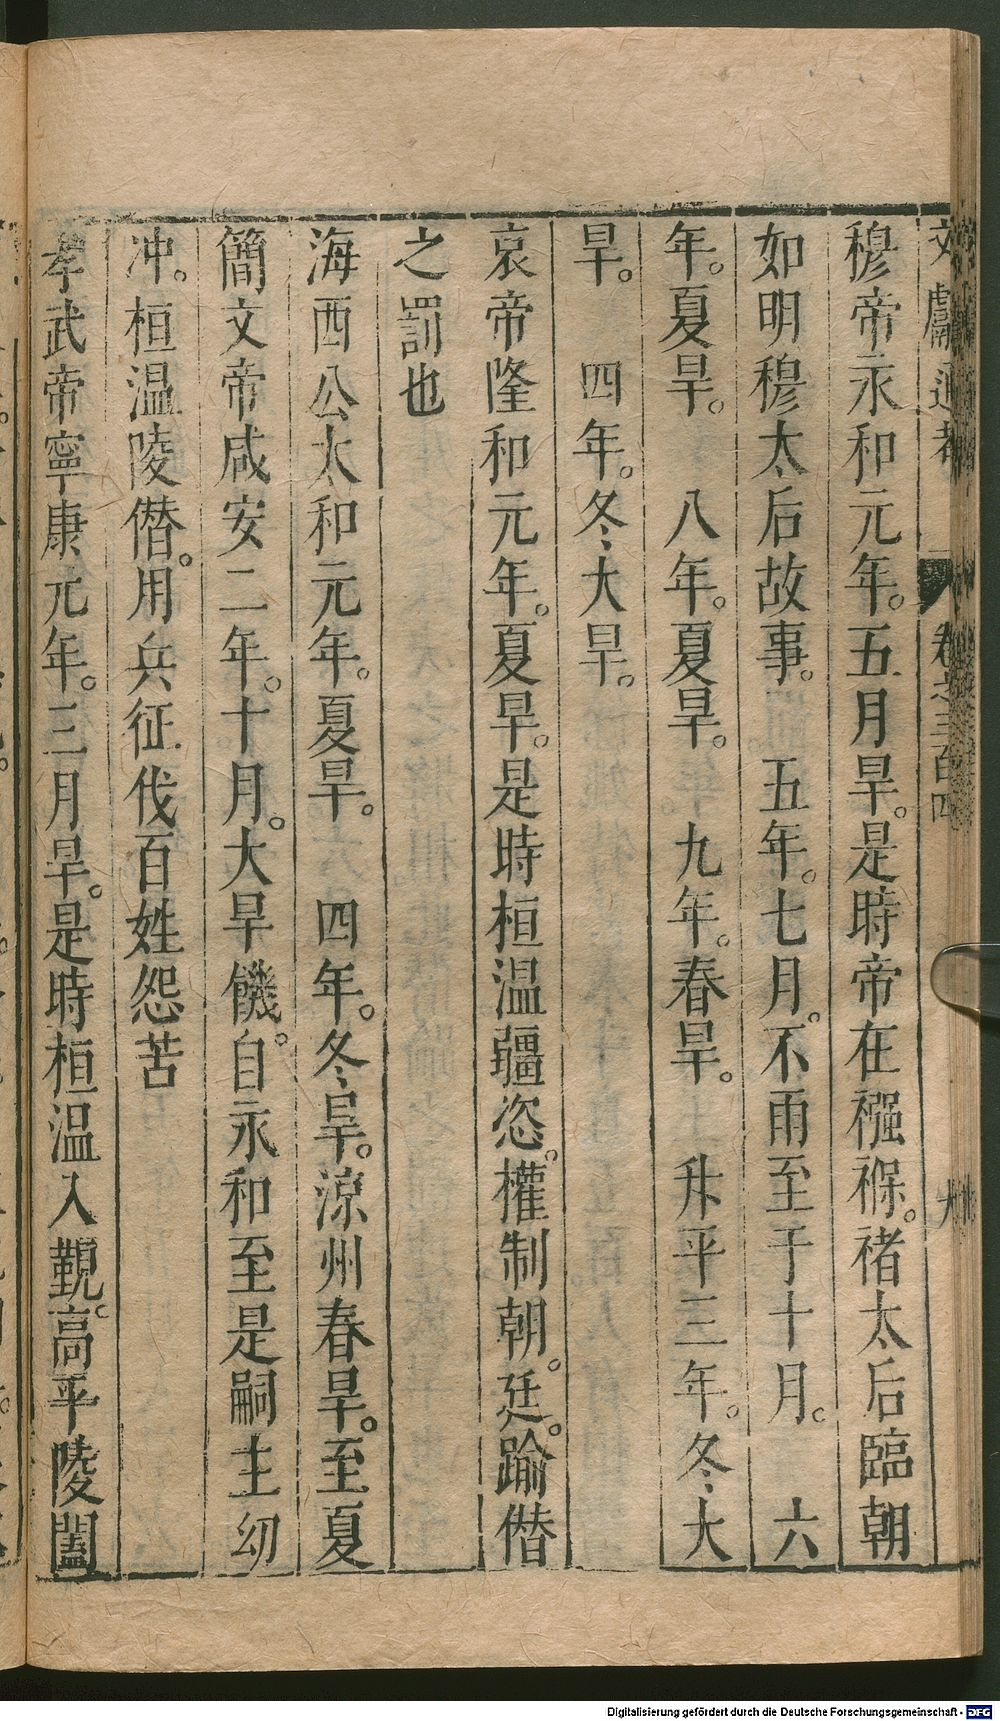 文獻通考 卷之三百四
穆帝永和元年。五月旱。是時帝在襁褓。褚太后臨朝
如明穆太后故事。 五年。七月。不雨至于十月。 六
年。夏旱。 八年。夏旱。 九年。春旱。 升平三年。冬大
旱。 四年。冬大旱。
哀帝隆和元年。夏旱。是時桓温疆恣。權制朝。廷。踰僣
之罰也
海西公太和元年。夏旱。 四年。冬旱。涼州春旱。至夏
簡文帝咸安二年。十月。大旱饑。自永和至是嗣主幼
冲。桓温陵僣。用兵征伐百姓怨苦
孝武帝寧康元年。三月旱。是時桓温入覲。高平陵闔
Digitalisierung gefördert durch die Deutsche Forschungsgemeinschaft - DFG